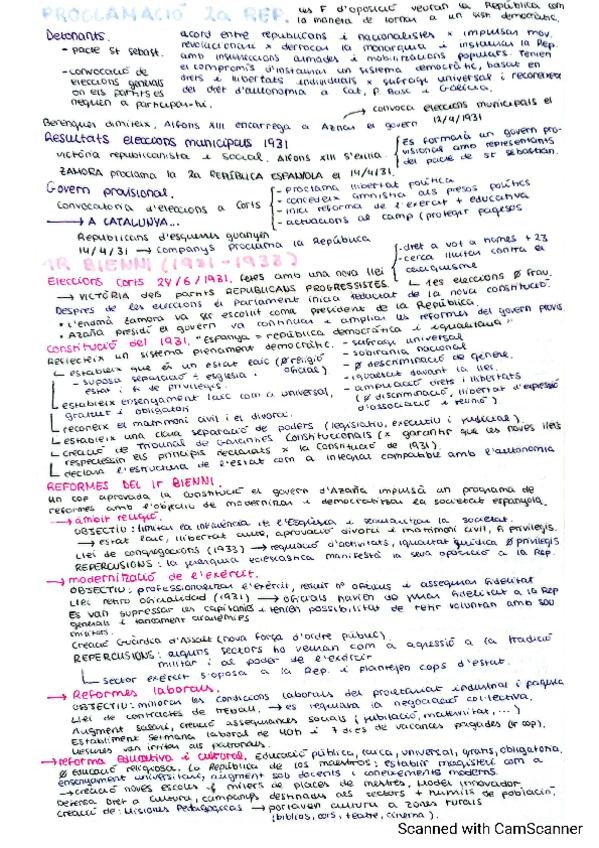 PROCLAMACIÓ 2a REP.
les F d'oposició veuran la República com
la manera de tornar a un sist. democràtic.
Detonants.
- pacte St Sebast.
acord entre republicans i nacionalistes x impulsar mov.
revolucionari x derrocar la monarquia i instaurar la Rep.
amb insurreccions armades i mobilitzacions populars. Tenien
el compromís d'instaurar un sistema democràtic, basat en
drets i llibertats individuals x sufragi universal i reconeixe
del dret d'autonomia a Cat, P. Basc i Galícia.
- convocació de
eleccions generals
on els partits es
neguen a participar-hi.
convoca eleccions municipals el
12/4/1931
Berenguer dimiteix, Alfons XIII encarrega a Aznar el govern
Resultats eleccions municipals 1931
victòria republicanista i social. Alfons XIII s'exilia.
ZAMORA proclama la 2a REPÚBLICA ESPANYOLA el 14/4/31.
Es formarà un govern pro-
visional amb representants
del pacte de St Sebastian.
Govern provisional.
Convocatòria d'eleccions a Corts
- proclama llibertat política
- concedeix amnistia als presos polítics
- inici reforma de l'exèrcit + educativa
- actuacions al camp (protegir pagesos
→ A CATALUNYA...
Republicans d'esquerres guanyen
14/4/31 → Companys proclama la República
1R BIENNI (1931-1933)
- dret a vot a homes + 23
- cerca lluitar contra el
caciquisme
Eleccions Corts 28/6/1931, fetes amb una nova llei
↳ 1es eleccions Ø frau.
→ VICTÒRIA dels partits REPUBLICANS PROGRESSISTES.
Despres de les eleccions el Parlament inicia redactat de la nova constitució.
• L'endmà Zamora va ser escollit com a president de la República.
• Azaña presidí el govern va continuar i ampliar les reformes del govern provis
Constitució del 1931. "Espanya = república democràtica i igualitària"
Reflecteix un sistema plenament democràtic.
- sufragi universal
- sobirania nacional
- Ø descriminació de gènere.
- igualtat davant la llei
- ampliació drets i llibertats
(Ø discriminació, llibertat d'expressió
d'associació i reunió)
↳ estableix que és un estat laic (Ø religió
oficial)
- suposa separació església i
estat i fi de privilegis.
↳ estableix ensenyament laic com a universal,
gratuït i obligatori
↳ reconeix el matrimoni civil i el divorci.
↳ estableix una clara separació de poders (legislatiu, executiu i judicial).
↳ creació de Tribunal de Garanties Constitucionals (x garantir que les noves lleis
respectessin els principis declarats x la Constitució de 1931).
↳ declara l'estructura de l'estat com a integral compatible amb l'autonomia
REFORMES DEL 1r BIENNI.
Un cop aprovada la Constitució el govern d'Azaña impulsà un programa de
reformes amb l'objectiu de modernitzar i democratitzar la societat espanyola.
→ àmbit religiós.
OBJECTIU: limitar la influència de l'Església i secularitzar la societat.
→ estat laic, llibertat culte, aprovació divorci i matrimoni civil, fi privilegis.
Llei de congregacions (1933) → regulació d'activitats, igualtat jurídica Ø privilegis
REPERCUSIONS: la jerarquia eclesiàstica manifestà la seva oposició a la Rep.
→ modernització de l'exèrcit.
OBJECTIU: professionalitzar l'exèrcit, reduir nº oficials i assegurar fidelitat
Llei retiro oficialidad (1931) → oficials havien de jurar fidelitat a la Rep
Es van supressar les capitanies i tenien possibilitat de retir voluntari amb sou
generals i tancament acadèmies
militars.
Creació Guàrdia d'Assalt (nova força d'ordre públic).
REPERCUSIONS: alguns sectors ho veuran com a agressió a la tradició
militar i al poder de l'exèrcit
↳ sector exèrcit s'oposa a la Rep. i plantejen cops d'estat.
→ Reformes laborals.
OBJECTIU: millorar les condicions laborals del proletariat industrial i pagesia
Llei de contractes de treball → es regulava la negociació col·lectiva.
Augment salari, creació assegurances socials (jubilació, maternitat, ...)
Establiment setmana laboral de 40h i 7 dies de vacances pagades (1r cop).
Mesures van irritar als patronals.
→ reforma educativa i cultural. Educació pública, laica, universal, gratis, obligatòria.
Ø educació religiosa. La República de los maestros: establir magisteri com a
ensenyament universitari, augment sou docents i coneixements moderns.
→ creació noves escoles + milers de places de mestres. Model innovador.
Defensa Dret a Cultura, campanyes destinades als sectors + humils de població.
Creació de: Misiones Pedagógicas → portaven cultura a zones rurals
(biblios, cors, teatre, cinema).
Scanned with CamScanner